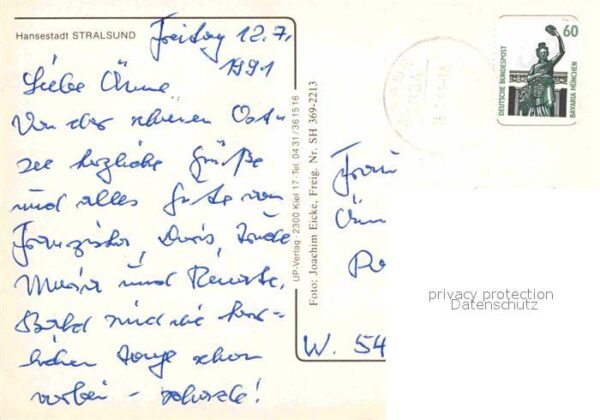 Hansestadt STRALSUND
Freitag 12.7.
1991
Liebe Änne
Von der schönen Ost-
see herzliche Grüße
und alles Gute von
Franziska, Doris, Trude
Maria und Renate.
Bald sind die herr-
lichen Tage schon
vorbei - schade!
UP-Verlag · 2300 Kiel 17 · Tel. 0431/361516
Foto: Joachim Eicke, Freig. Nr. SH 369-2213
60
DEUTSCHE BUNDESPOST
BAVARIA MÜNCHEN
Frau
Änn
W. 54
privacy protection
Datenschutz